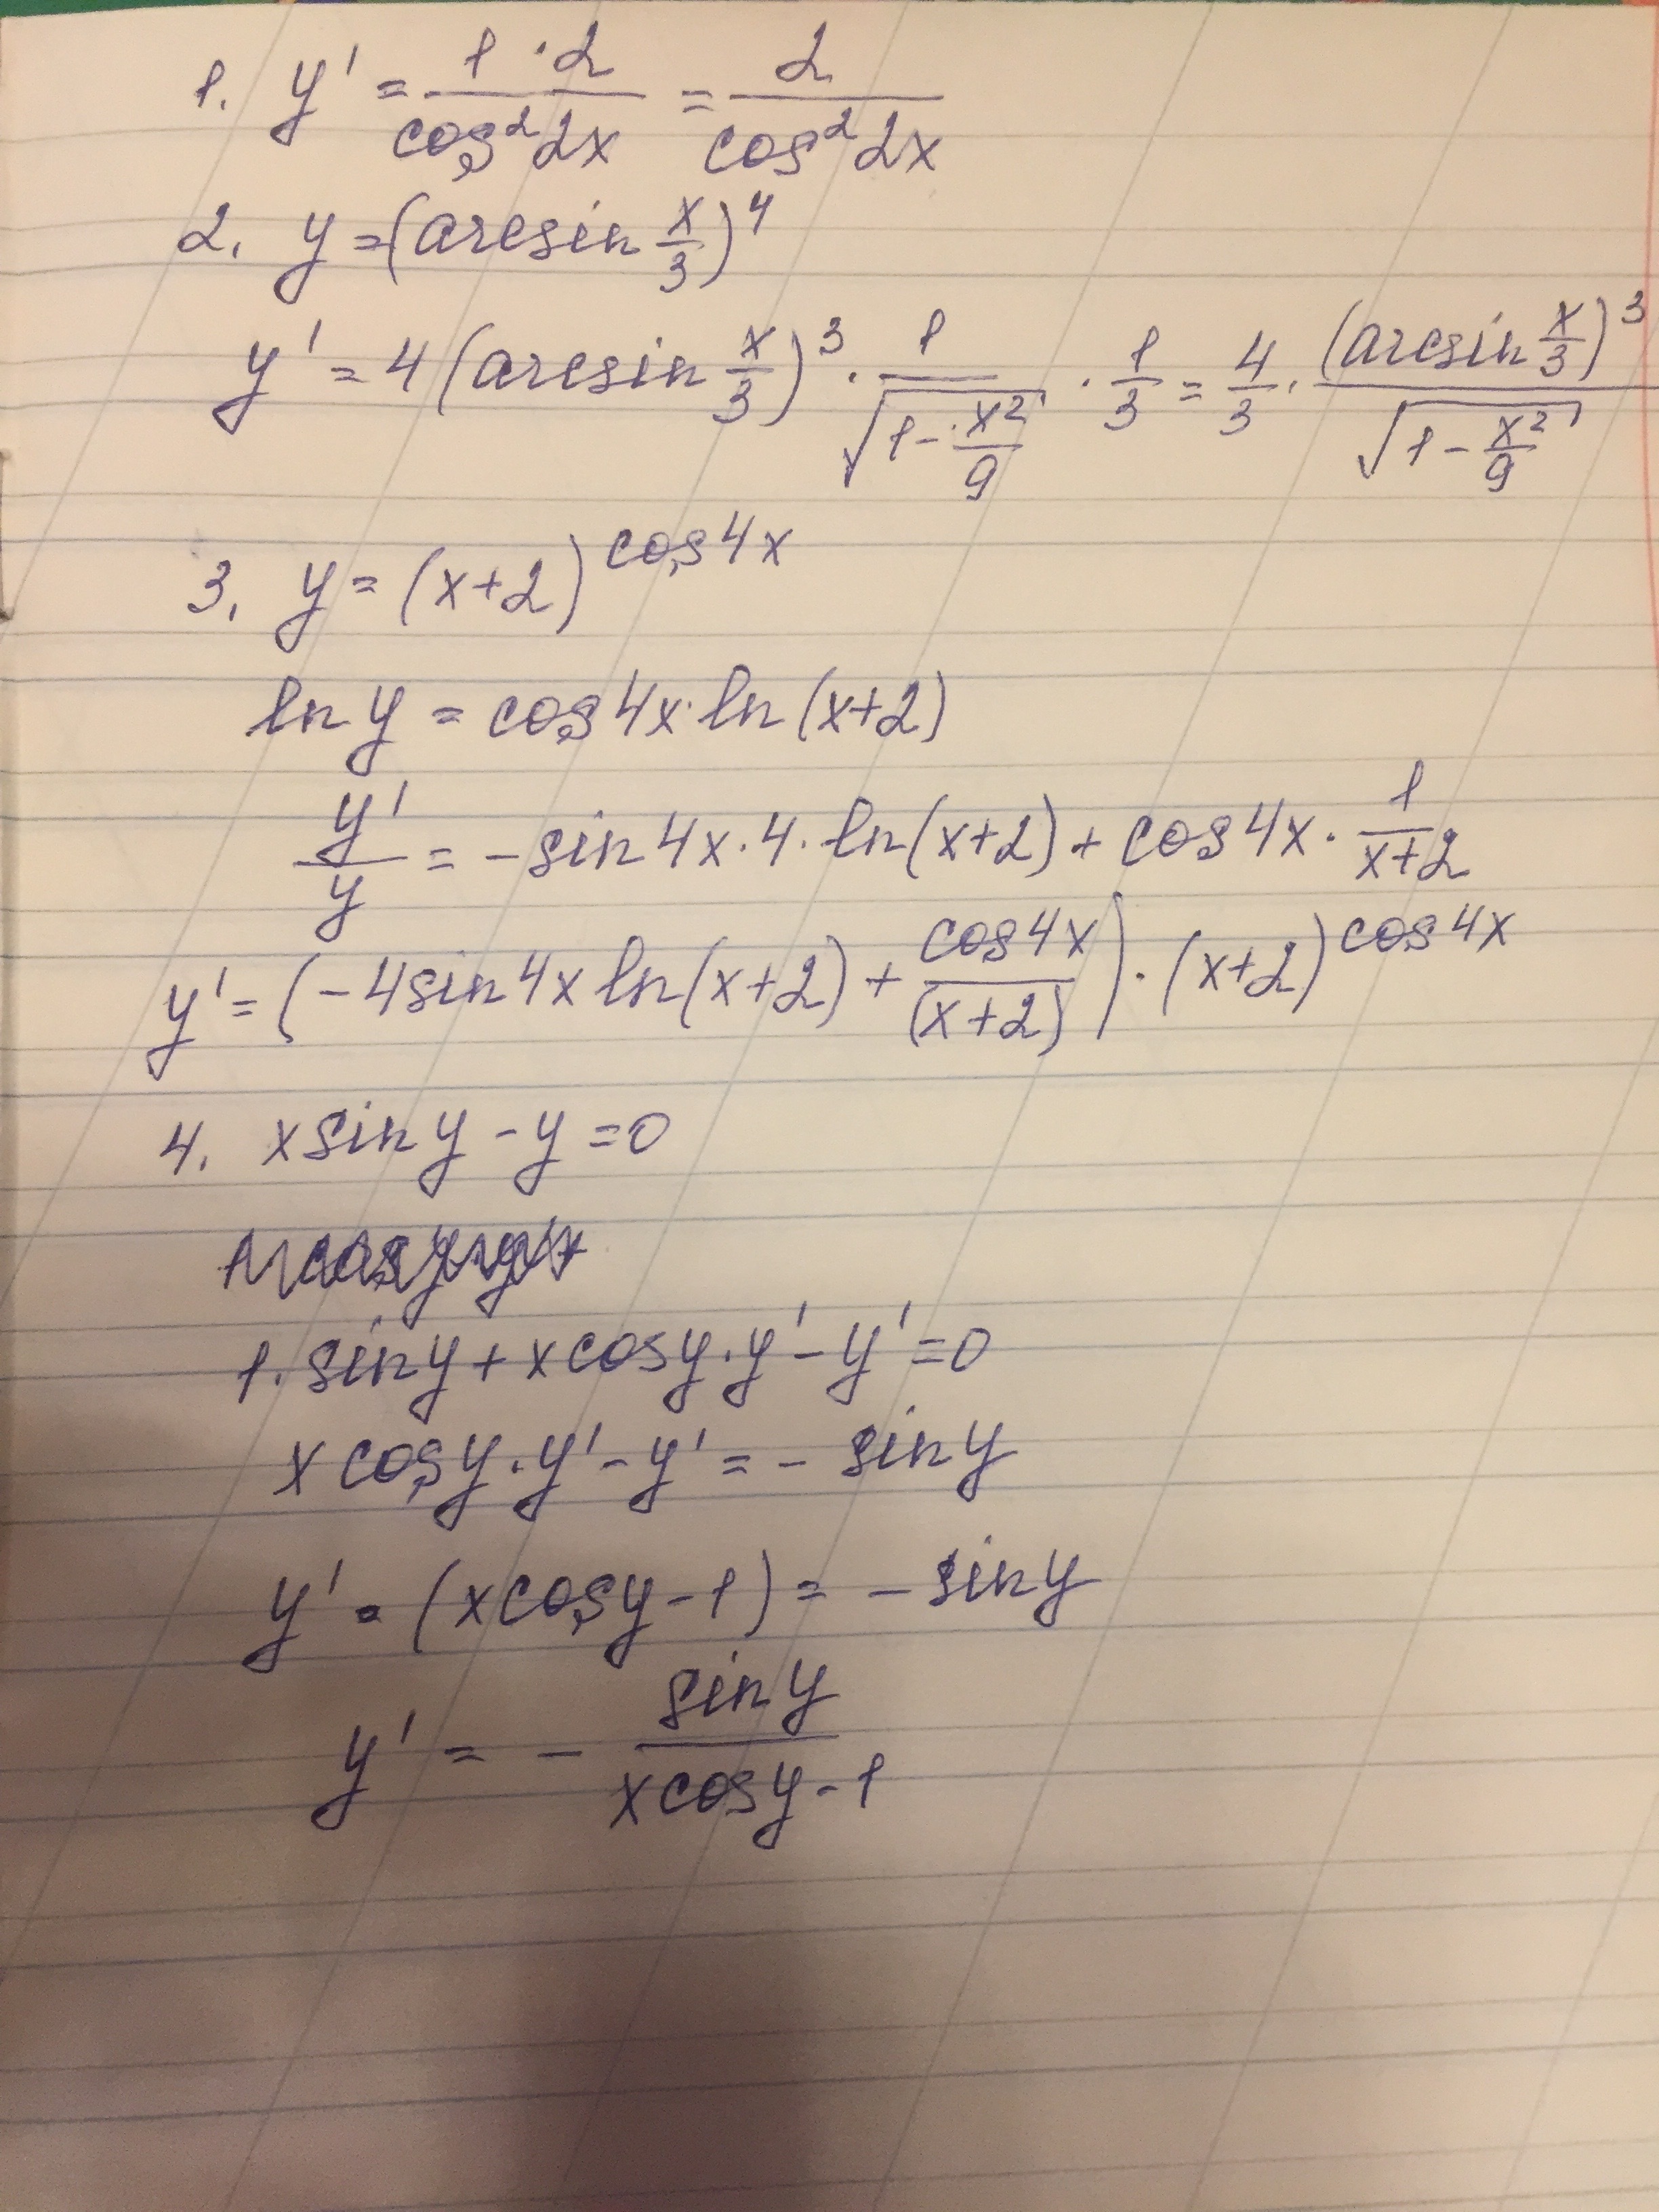 1. y' = 1·2/cos²2x = 2/cos²2x
2. y = (arcsin x/3)⁴
y' = 4(arcsin x/3)³ · 1/√(1 - x²/9) · 1/3 = 4/3 · (arcsin x/3)³/√(1 - x²/9)
3. y = (x+2)^cos4x
ln y = cos4x · ln(x+2)
y'/y = -sin4x · 4 · ln(x+2) + cos4x · 1/(x+2)
y' = (-4sin4x ln(x+2) + cos4x/(x+2)) · (x+2)^cos4x
4. x sin y - y = 0
1 · sin y + x cos y · y' - y' = 0
x cos y · y' - y' = - sin y
y' · (x cos y - 1) = - sin y
y' = - sin y/(x cos y - 1)